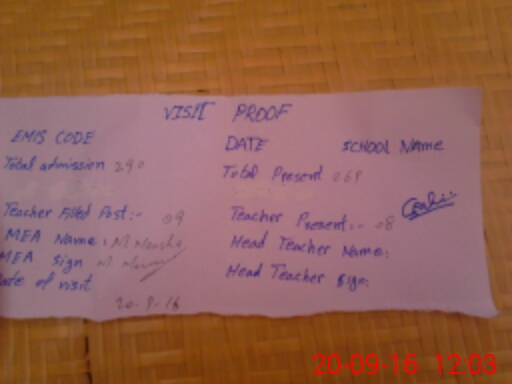 VISIT PROOF
EMIS CODE DATE SCHOOL Name
Total admission 290 Total Present 068
Teacher Filled Post:- 09 Teacher Present:- 08
MEA Name: M. Head Teacher Name:
MEA Sign M. Head Teacher Sign:
Date of visit
20-9-16
20-09-16 12:03